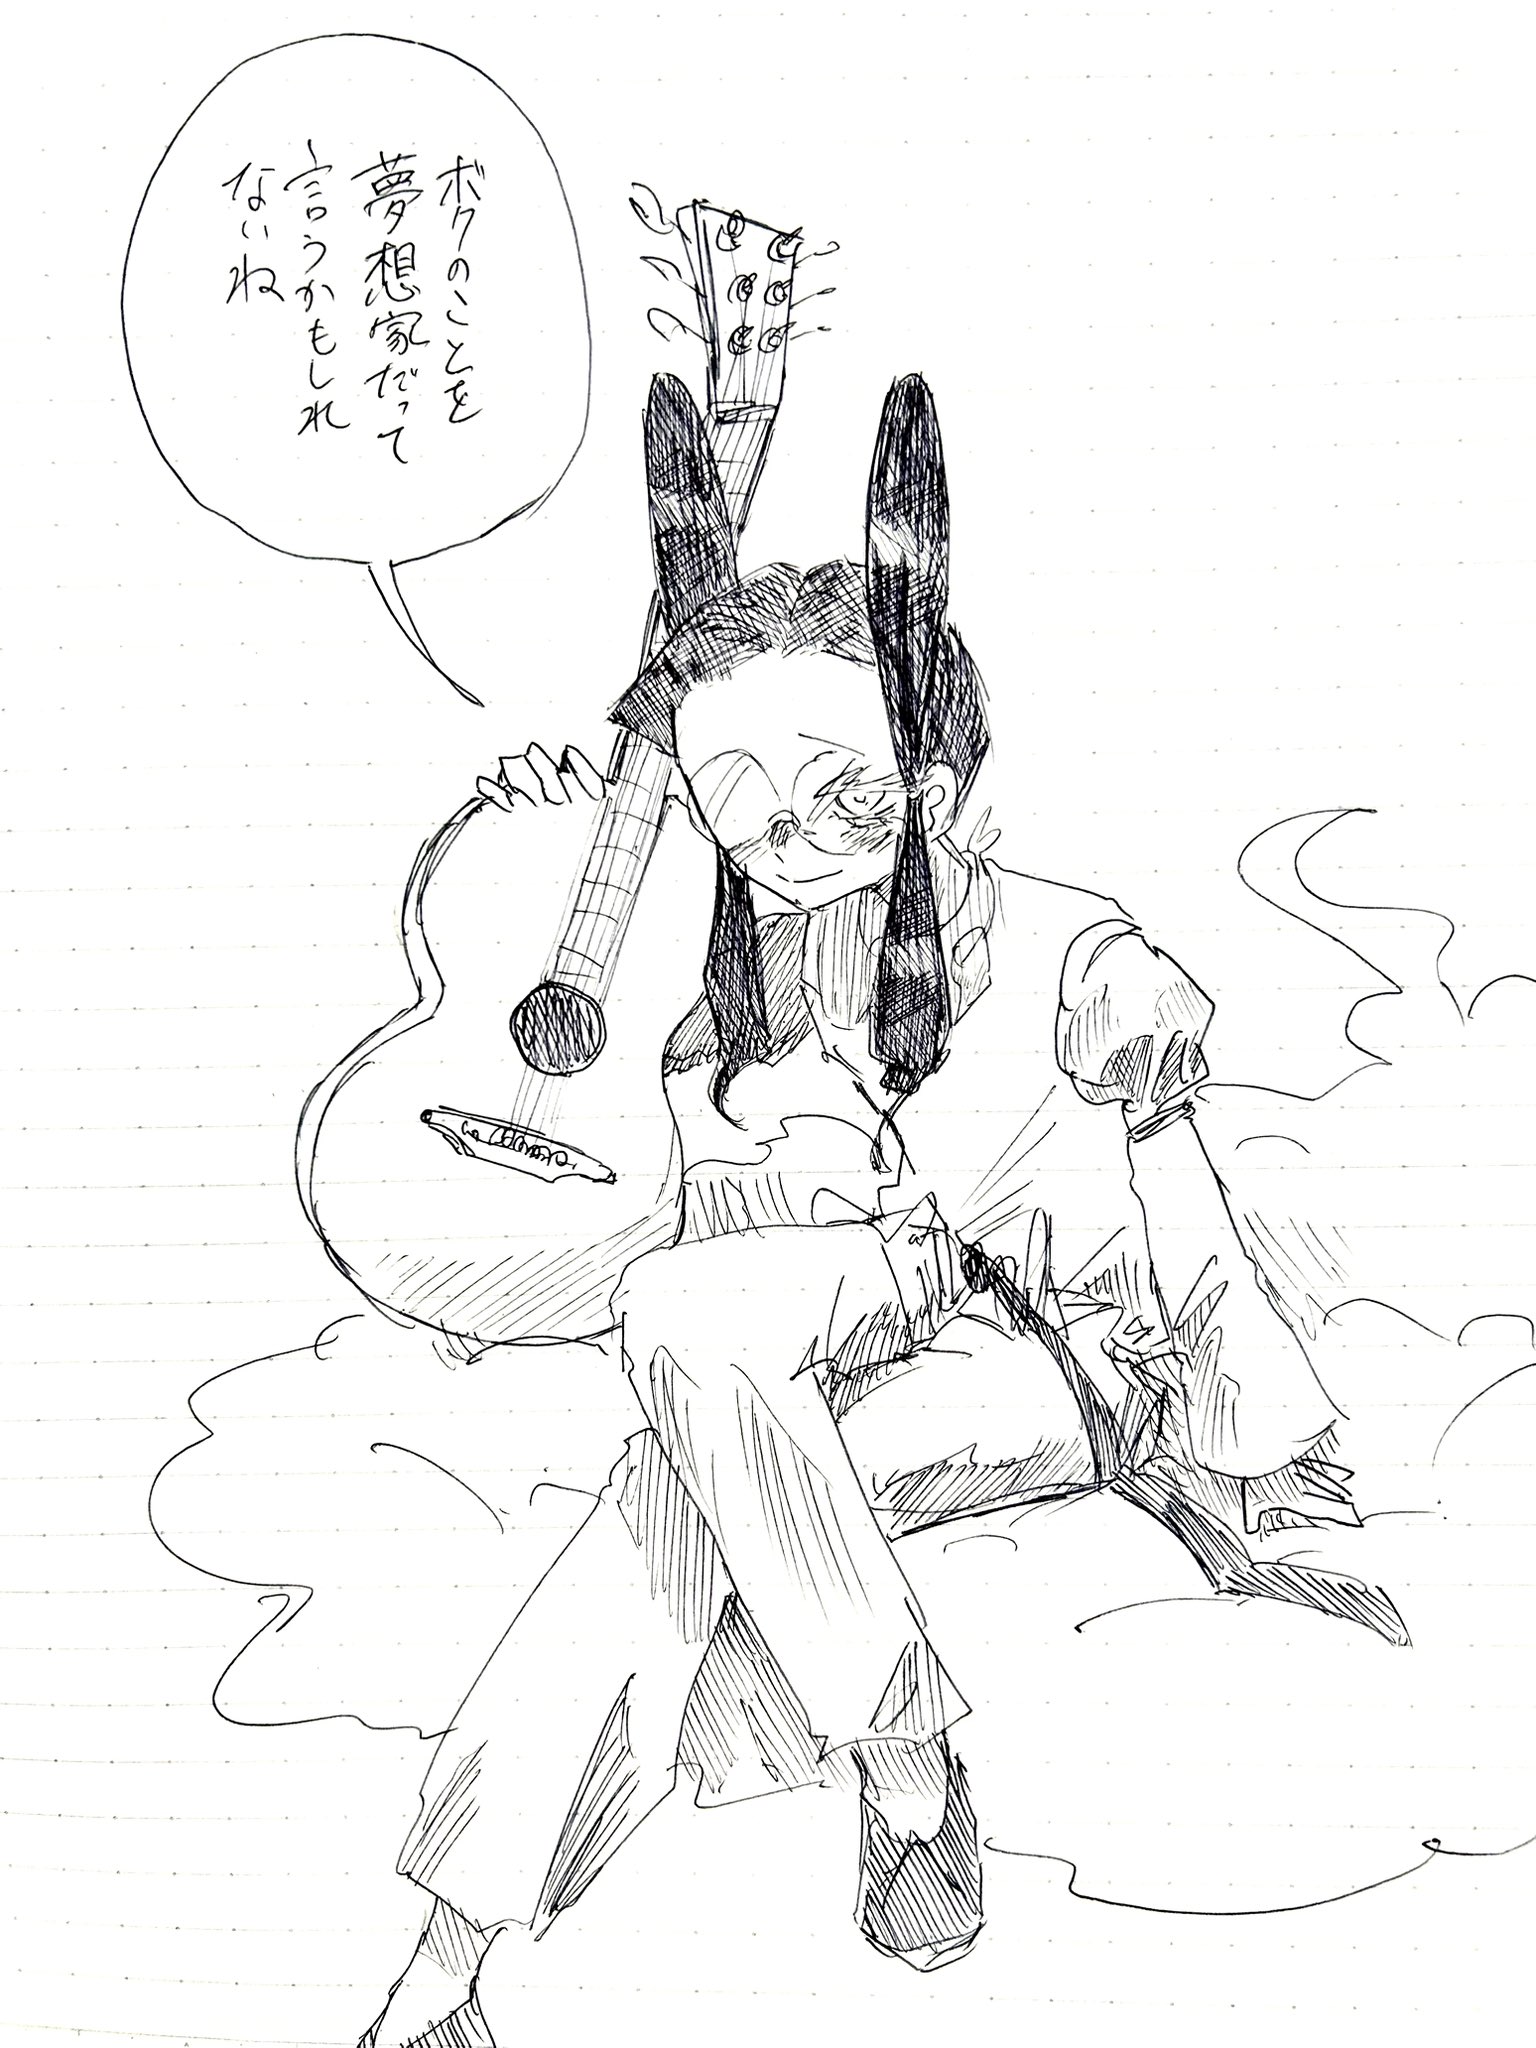 ボクのことを
夢想家だって
言うかもしれ
ないね